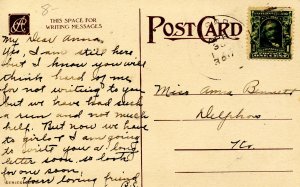 8-
THIS SPACE FOR
WRITING MESSAGES
POST CARD
My Dear Anna,
Yes, I am still here
but I know you will
think hard of me
for not writing to you
but we have had such
a run and not much
help. But now we have
to girls & I am going
to write you a long
letter soon, so look
for one soon.
Your loving friend
B.C.
Miss Anna Bennett
Delphos
Ks.